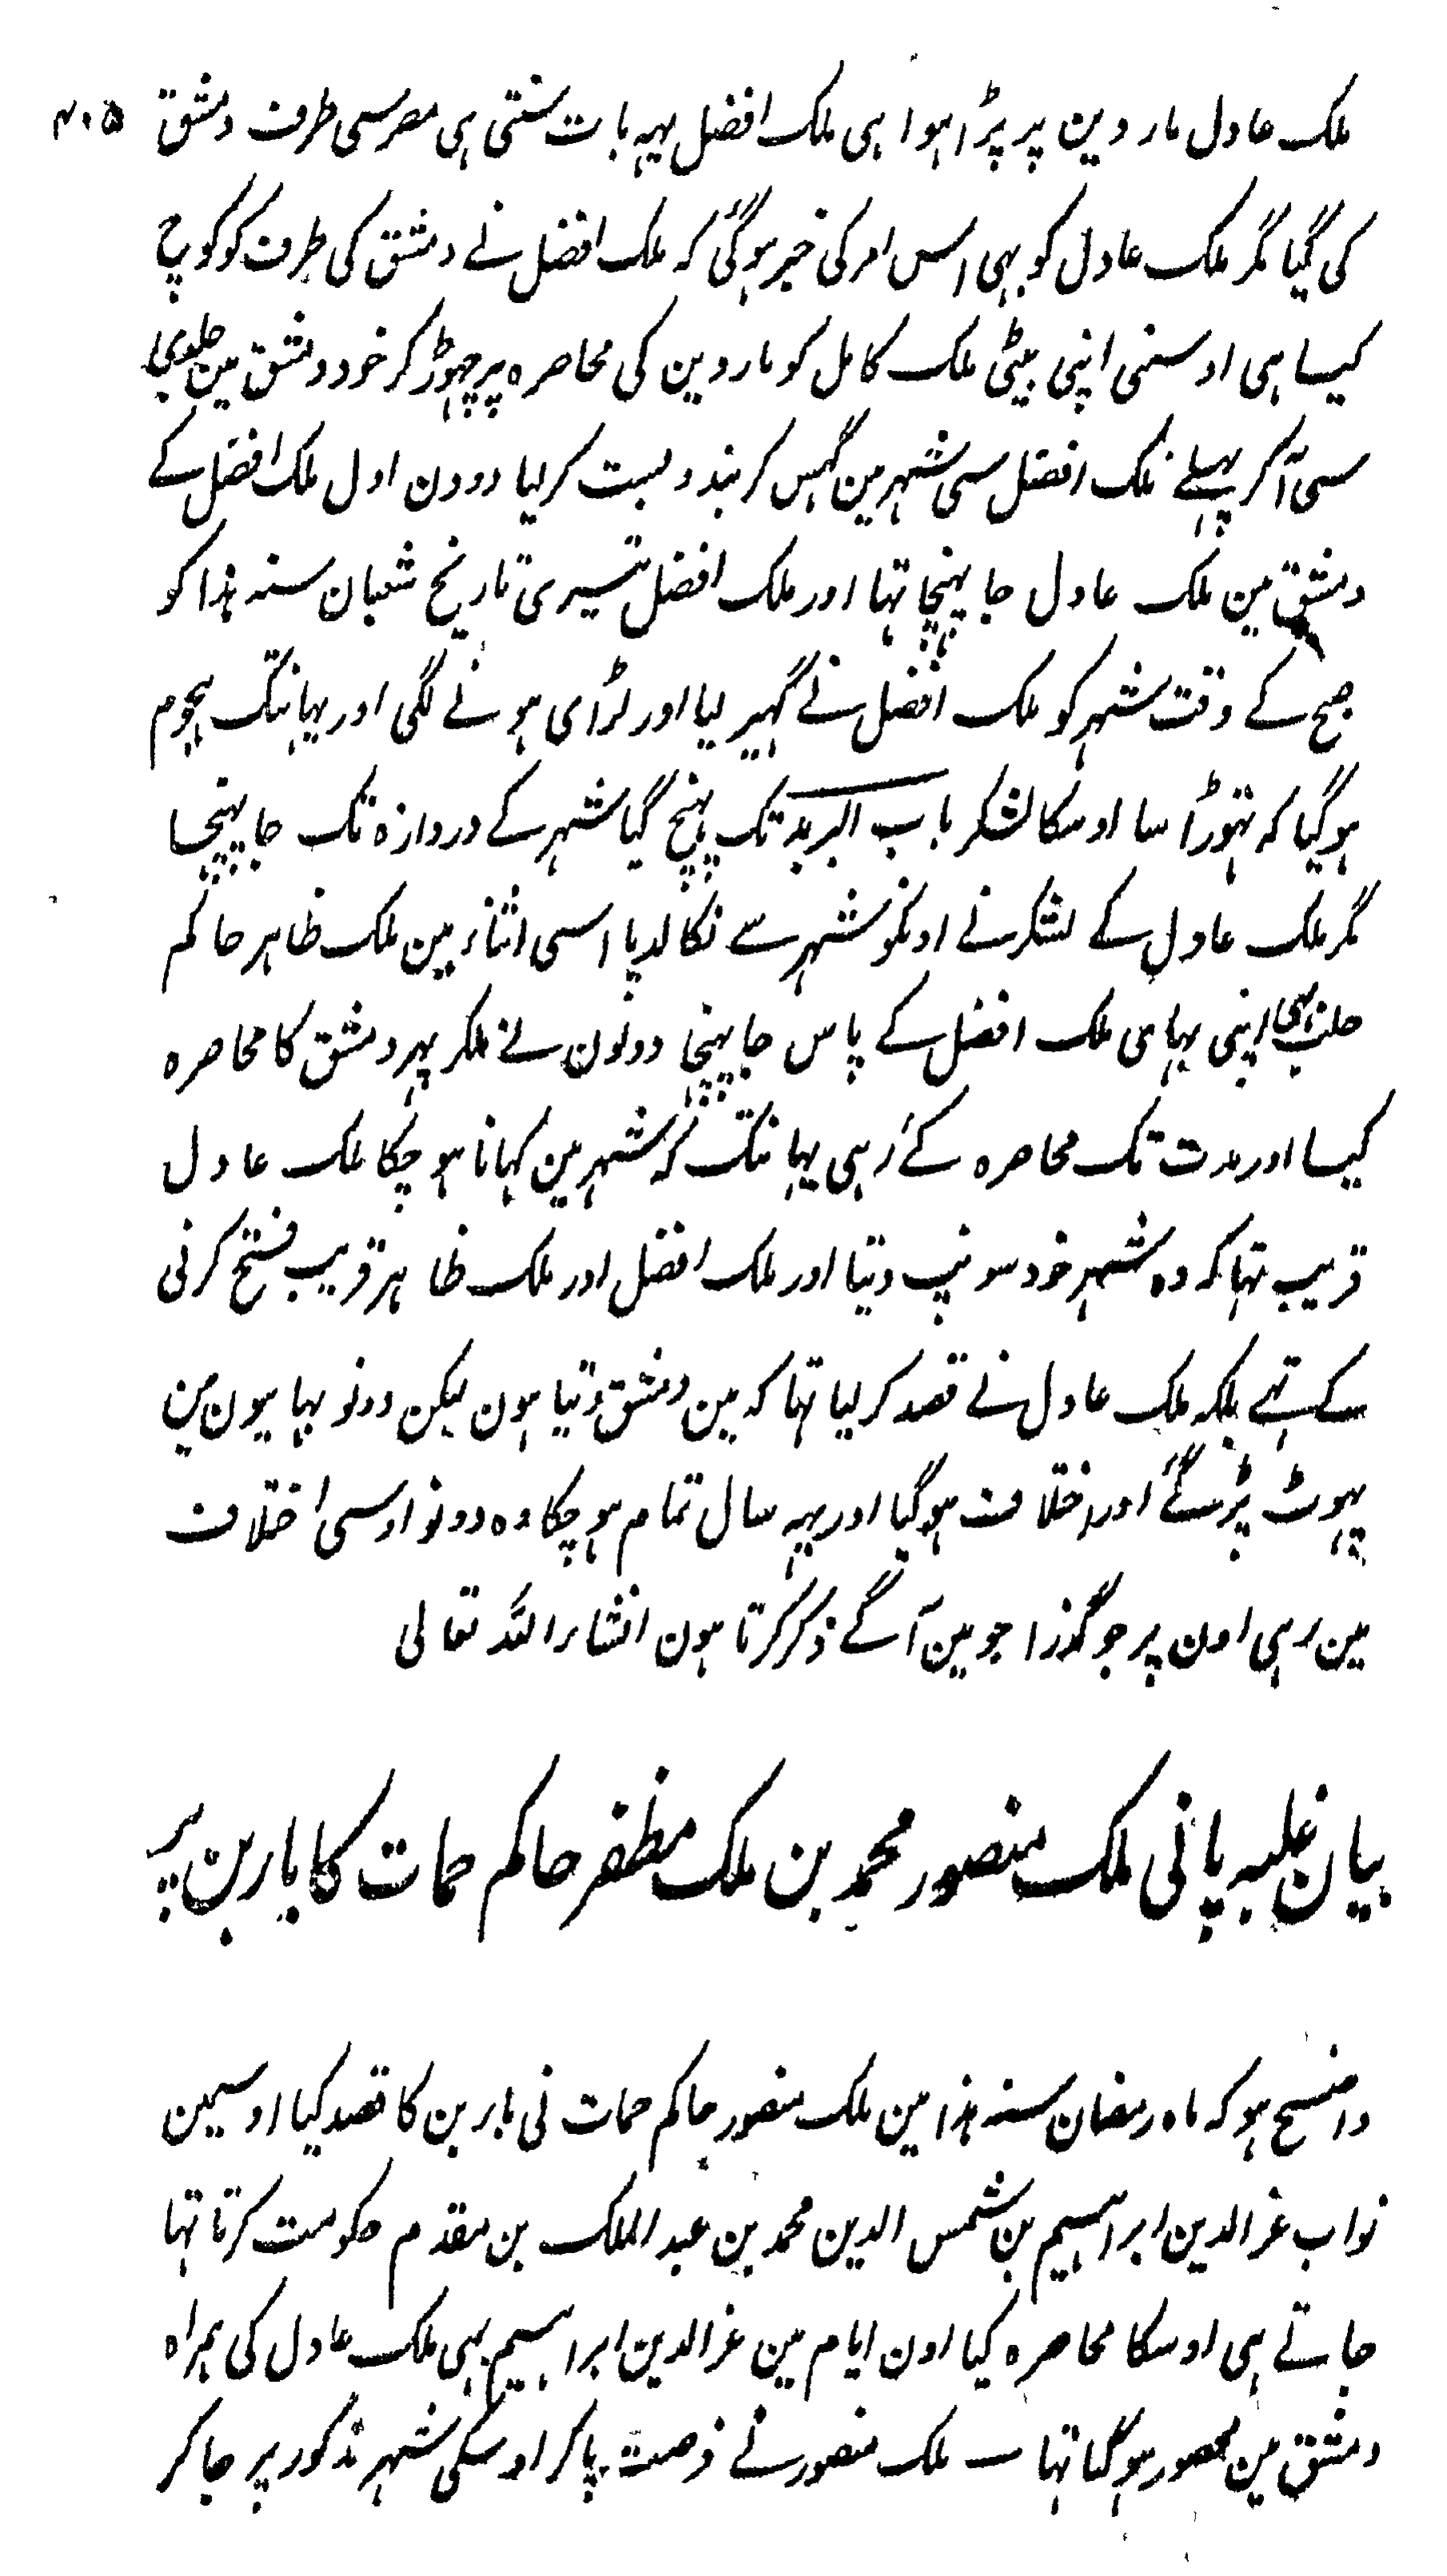 ملک عادل ماردین پر پڑا ہوا ہی ملک افضل یہہ بات سنتی ہی مصر سی طرف دمشق ۴۰۵
کی گیا مگر ملک عادل کو بہی اس امر کی خبر ہو گئی کہ ملک افضل نے دمشق کی طرف کو کوچ
کیا ہی اوسنی اپنی بیٹی ملک کامل کو ماردین کی محاصرہ پر چہوڑ کر خود دمشق مین جلدی
سی آکر پہلے ملک افضل سی شہر مین گہس کر بندوبست کر لیا دو دن اول ملک افضل کے
دمشق مین ملک عادل جا پہنچا تہا اور ملک افضل تیسری تاریخ شعبان سنہ ہذا کو
صبح کے وقت شہر کو ملک افضل نے گہیر لیا اور لڑای ہونے لگی اور یہانتک ہجوم
ہو گیا کہ تہوڑا سا اوسکا لشکر باب البرید تک پہنچ گیا شہر کے دروازہ تک جا پہنچا
مگر ملک عادل کے لشکر نے اونکو شہر سے نکالدیا اسی اثناء مین ملک ظاہر حاکم
حلب بہی اپنی بہای ملک افضل کے پاس جا پہنچا دونون نے ملکر پہر دمشق کا محاصرہ
کیا اور مدت تک محاصرہ کئے رہی یہانتک کہ شہر مین کہانا ہو چکا ملک عادل
قریب تہا کہ وہ شہر خود سونپ دیتا اور ملک افضل اور ملک ظاہر قریب فتح کرنی
کے تہے بلکہ ملک عادل نے قصد کر لیا تہا کہ مین دمشق دیتا ہون لیکن دونو بہایون مین
پہوٹ پڑ گئے اور اختلاف ہو گیا اور یہہ سال تمام ہو چکا وہ دونو اوسی اختلاف
مین رہی اون پر جو گذرا جو مین آگے ذکر کرتا ہون انشاء اللہ تعالی
بیان غلبہ پانی ملک منصور محمد بن ملک مظفر حاکم حمات کا بارین پر
واضح ہو کہ ماہ رمضان سنہ ہذا مین ملک منصور حاکم حمات نی بارین کا قصد کیا اوسیمین
نواب عزالدین ابراہیم بن شمس الدین محمد بن عبد الملک بن مقدم حکومت کرتا تہا
جاتے ہی اوسکا محاصرہ کیا اون ایام مین عزالدین ابراہیم بہی ملک عادل کی ہمراہ
دمشق مین محصور ہو گیا تہا ۔ ملک منصور نے فرصت پا کر اوسکی شہر مذکور پر جا کر